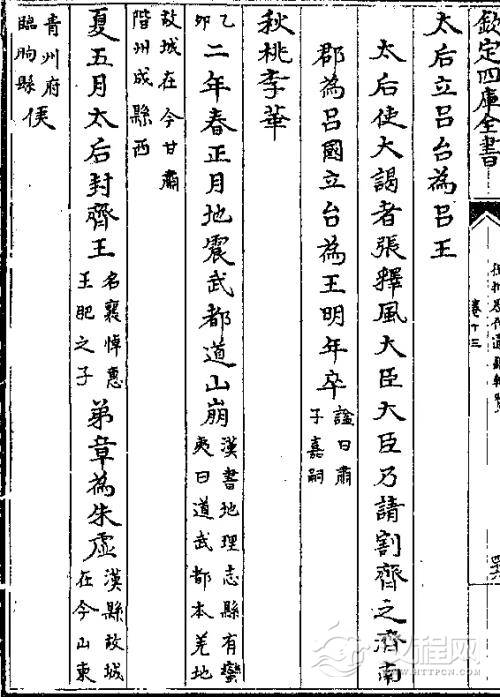 欽定四庫全書
卷十三
太后立呂台為呂王
太后使大謁者張釋風大臣大臣乃請割齊之濟南
郡為呂國立台為王明年卒諡曰肅
子嘉嗣
秋桃李華
乙
卯
二年春正月地震武都道山崩漢書地理志縣有蠻
夷曰道武都本羌地
故城在今甘肅
階州成縣西
夏五月太后封齊王名襄悼惠
王肥之子
弟章為朱虛漢縣故城
在今山東
青州府
臨朐縣
侯
文程网
HTTPCN.COM